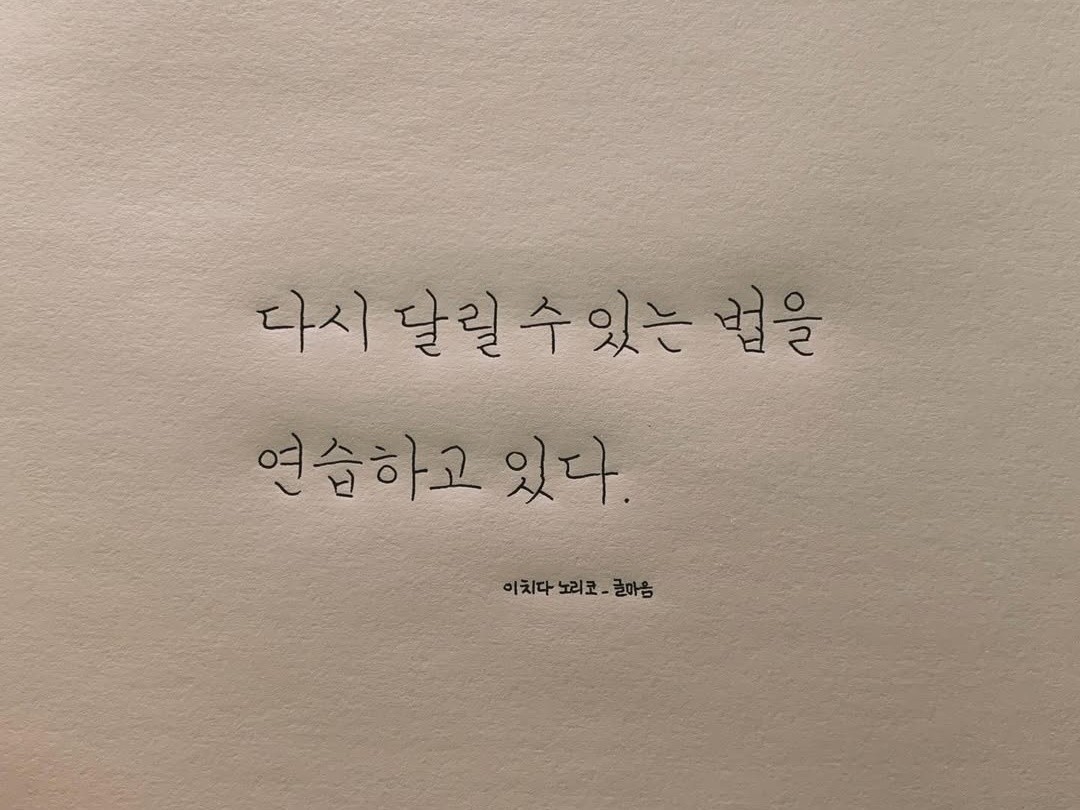 다시 달릴 수 있는 법을
연습하고 있다.
이치다 노리코 - 글마음